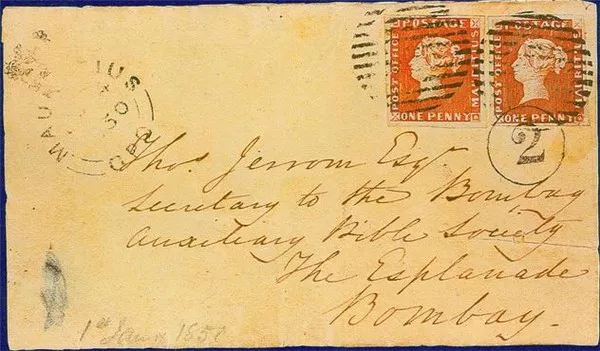 POSTAGE
POST OFFICE
MAURITIUS
ONE PENNY
POSTAGE
POST OFFICE
MAURITIUS
ONE PENNY
MAURITIUS
50
GPO
2
Thos Jerrom Esqr
Secretary to the Bombay
Auxiliary Bible Society
The Esplanade
Bombay.
1st Jany 1850